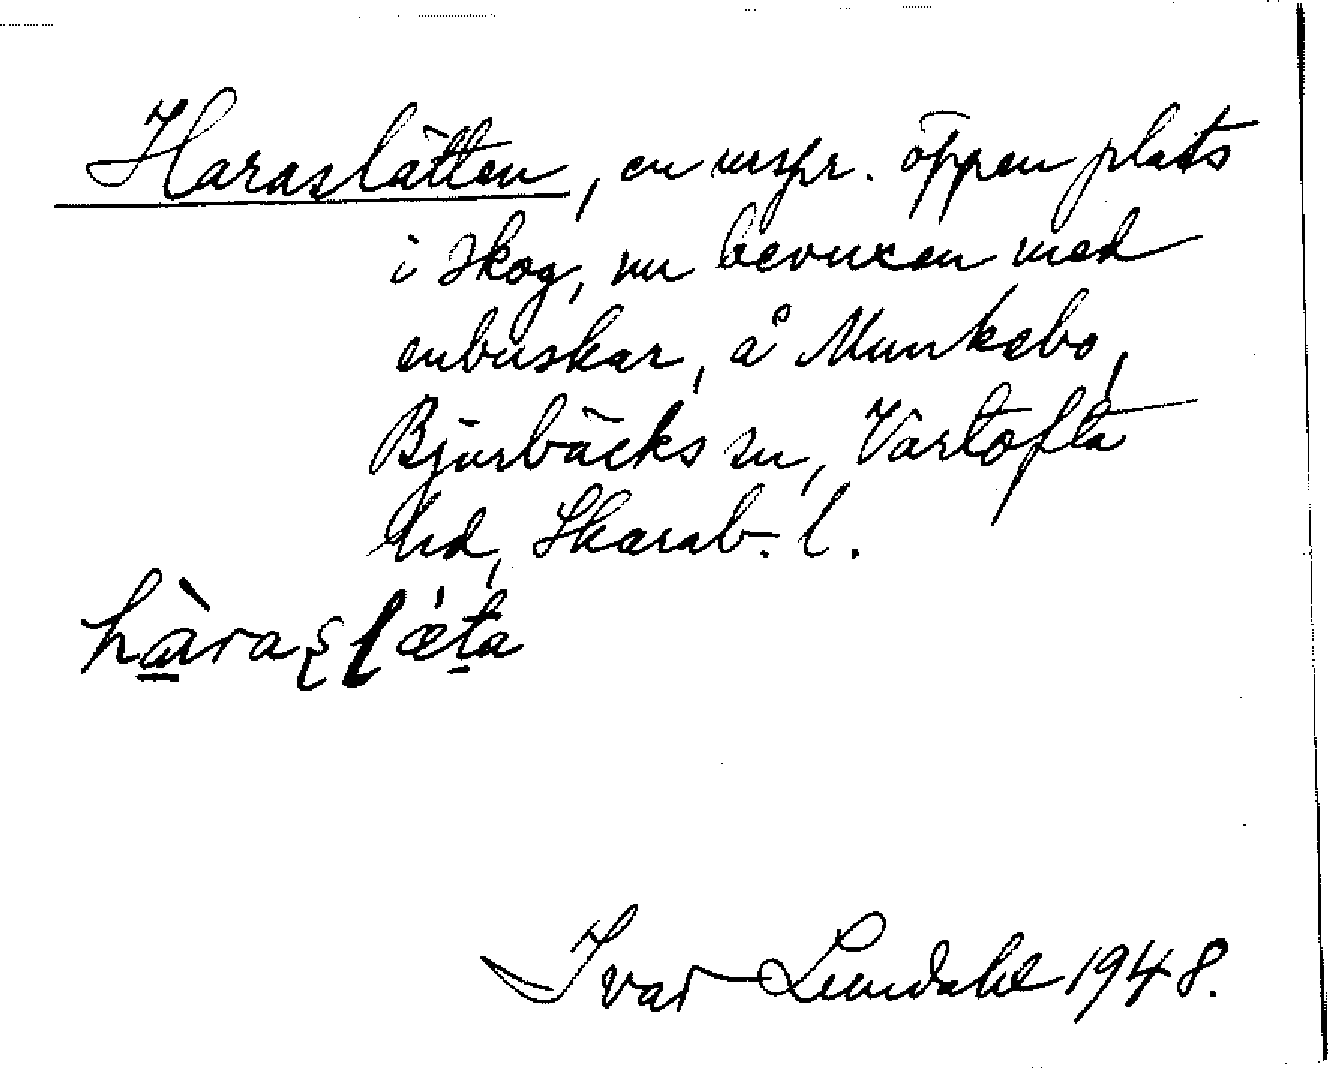 Haraslätten, en urspr. öppen plats
i skog, nu bevuxen med
enbuskar, å Munkebo,
Bjurbäcks sn, Vartofta
hd, Skarab. l.
hàraslæ̀ta
Ivar Lundahl 1948.